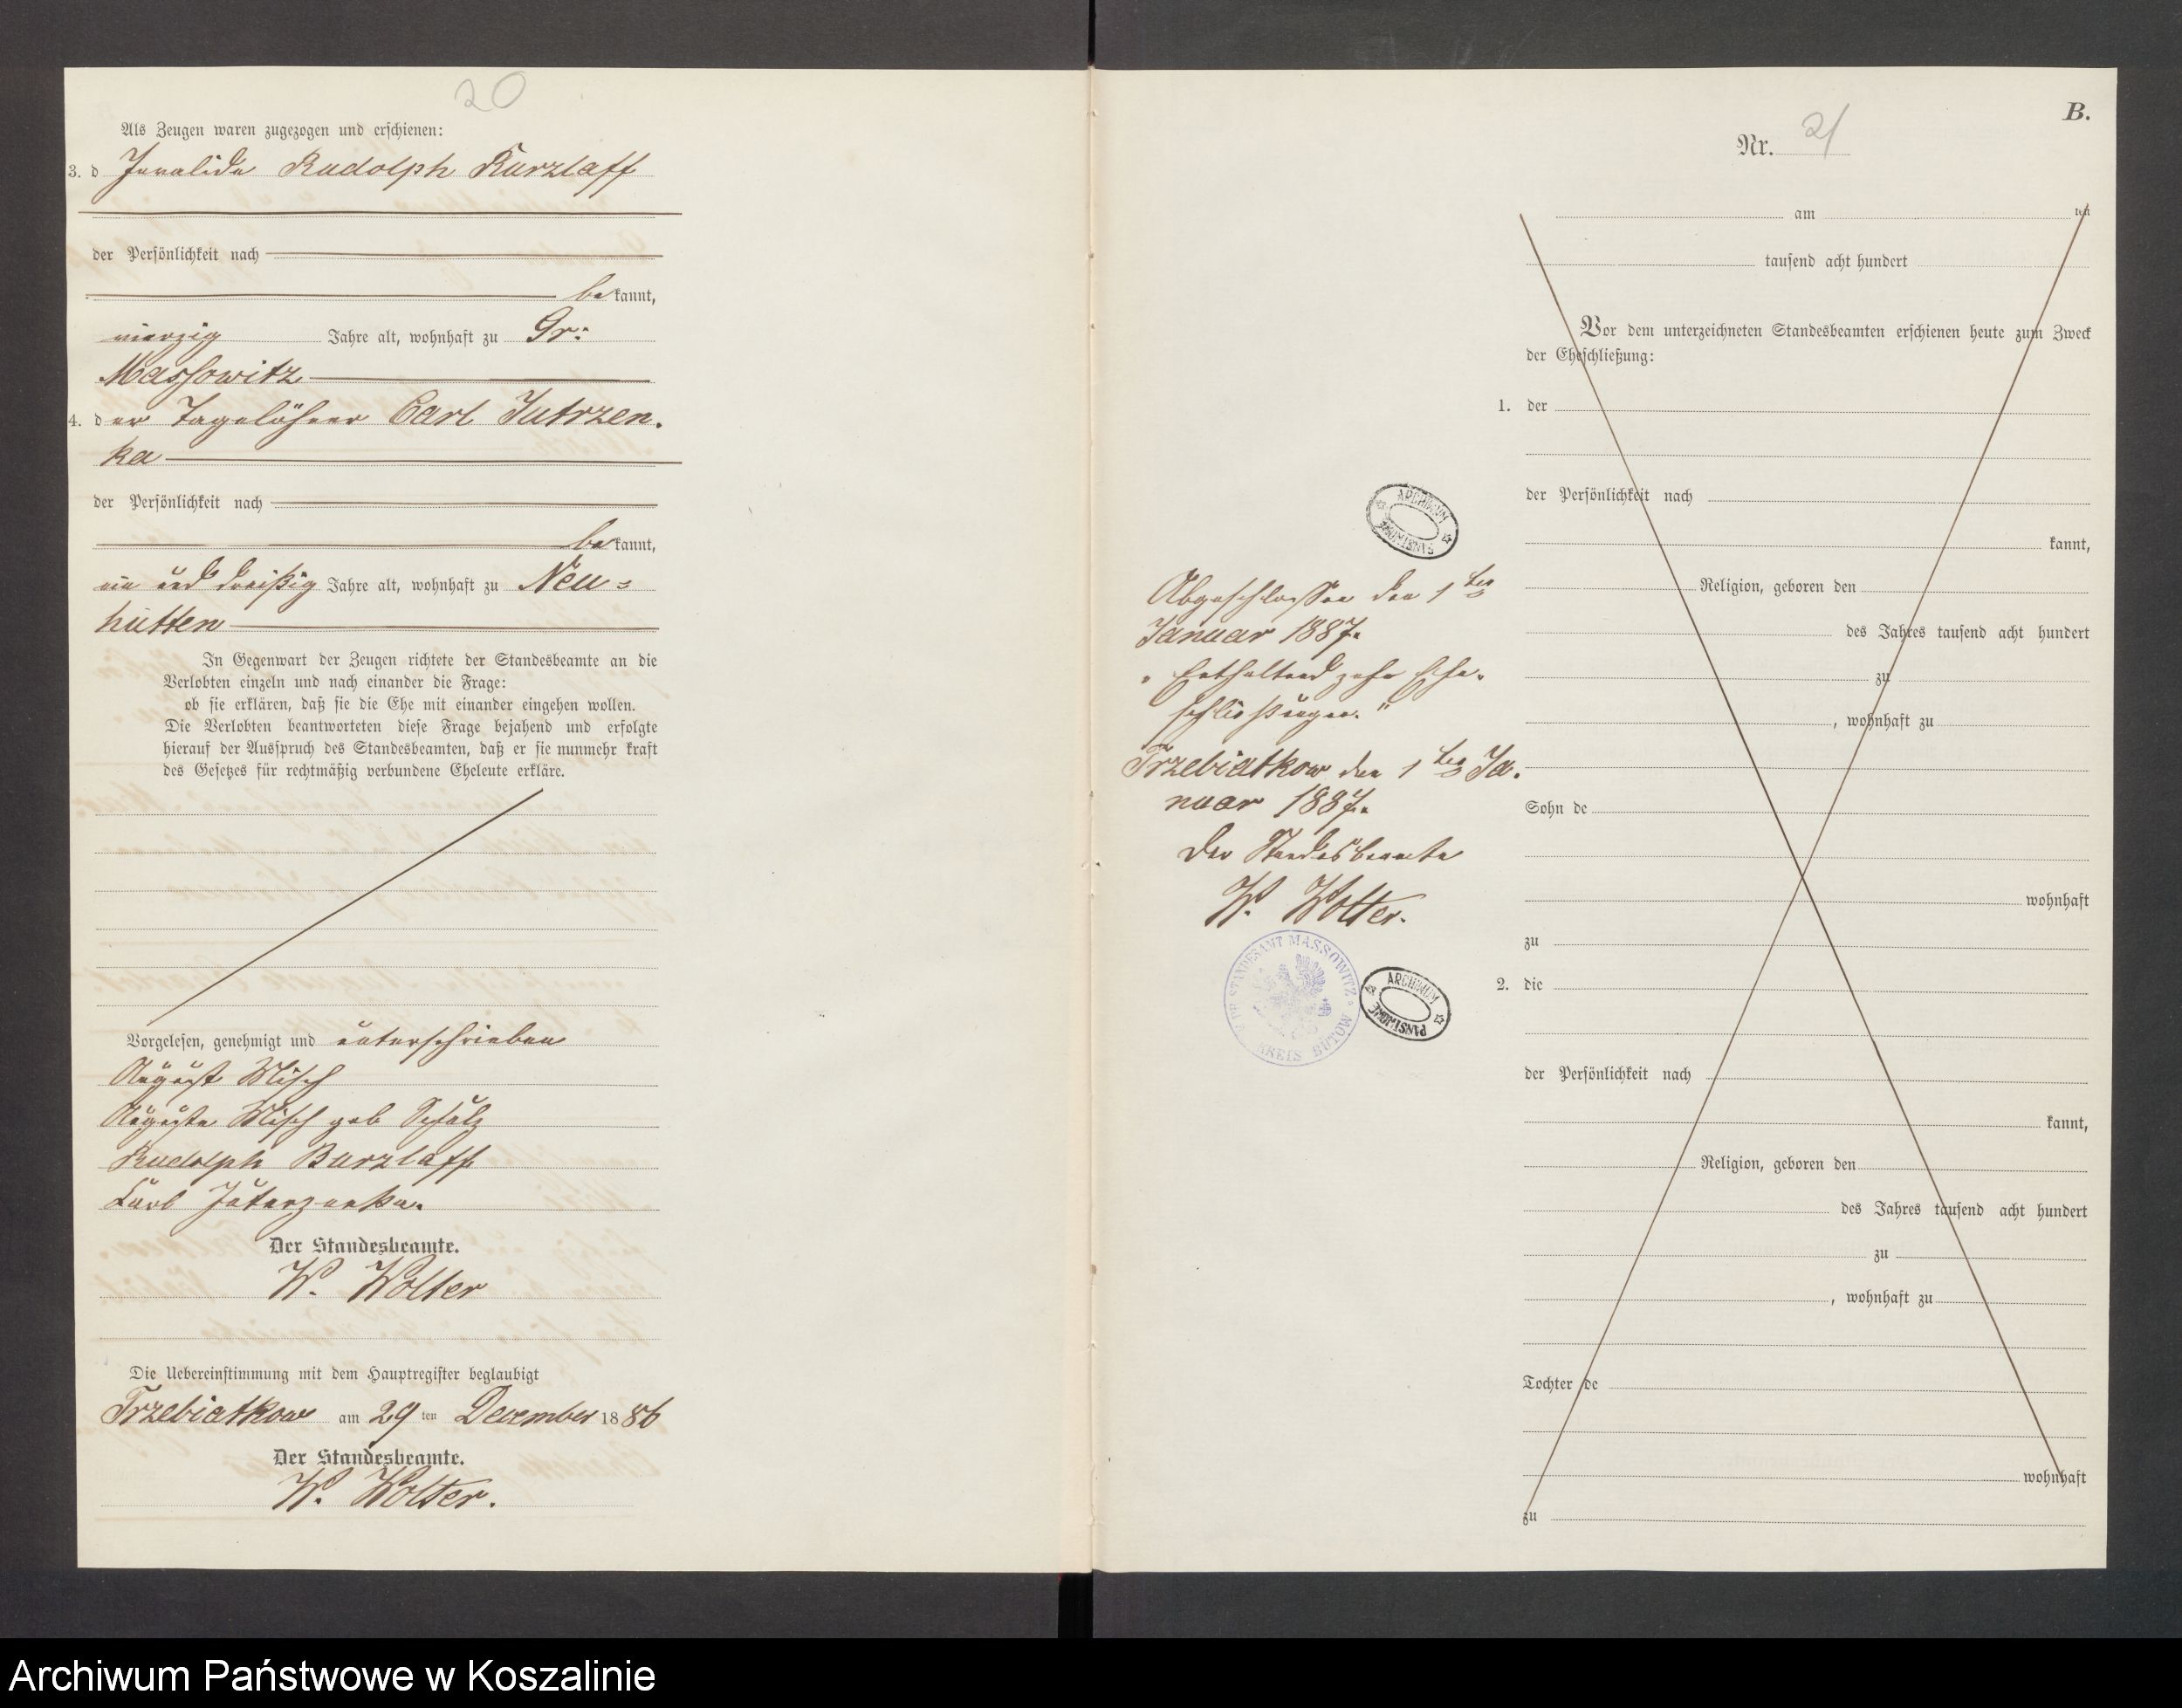 20
Als Zeugen waren zugezogen und erschienen:
3. d Invalide Rudolph Burzlaff
der Persönlichkeit nach
bekannt,
vierzig Jahre alt, wohnhaft zu Gr:
Massowitz
4. der Tagelöhner Carl Jutrzen-
ka
der Persönlichkeit nach
bekannt,
ein und dreißig Jahre alt, wohnhaft zu Neu=
hütten
In Gegenwart der Zeugen richtete der Standesbeamte an die
Verlobten einzeln und nach einander die Frage:
ob sie erklären, daß sie die Ehe mit einander eingehen wollen.
Die Verlobten beantworteten diese Frage bejahend und erfolgte
hierauf der Ausspruch des Standesbeamten, daß er sie nunmehr kraft
des Gesetzes für rechtmäßig verbundene Eheleute erkläre.
Vorgelesen, genehmigt und unterschrieben
August Misch
Auguste Misch geb Schulz
Rudolph Burzlaff
Karl Juterzenka.
Der Standesbeamte.
W. Wolter
Die Uebereinstimmung mit dem Hauptregister beglaubigt
Trzebiatkow am 29ten December 1886
Der Standesbeamte.
W. Wolter.
B.
Nr. 21
am ten
tausend acht hundert
Vor dem unterzeichneten Standesbeamten erschienen heute zum Zweck
der Eheschließung:
1. der
der Persönlichkeit nach
kannt,
Religion, geboren den
des Jahres tausend acht hundert
zu
, wohnhaft zu
Sohn de
wohnhaft
zu
2. die
der Persönlichkeit nach
kannt,
Religion, geboren den
des Jahres tausend acht hundert
zu
, wohnhaft zu
Tochter de
wohnhaft
zu
ARCHIWUM
PAŃSTWOWE
Abgeschlossen den 1ten
Januar 1887.
"Enthaltend zehn Ehe-
schließungen."
Trzebiatkow den 1ten Ja-
nuar 1887.
Der Standesbeamte
W. Wolter.
STANDESAMT MASSOWITZ
KREIS BÜTOW
ARCHIWUM
PAŃSTWOWE
Archiwum Państwowe w Koszalinie